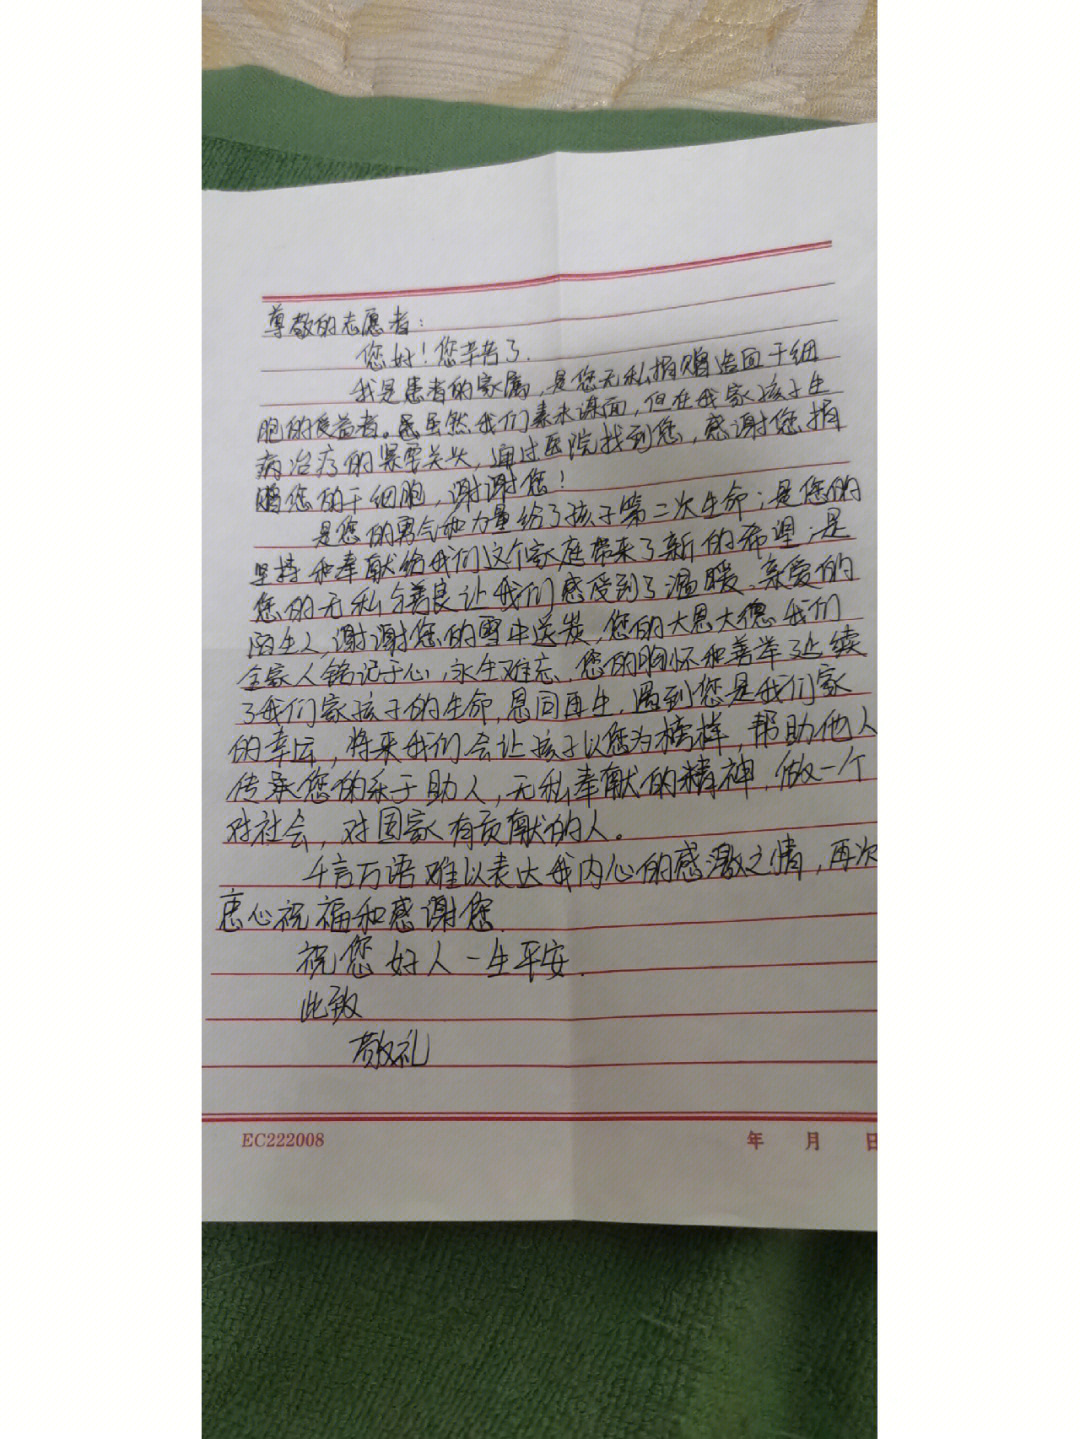 尊敬的志愿者：
您好！您辛苦了.
我是患者的家属，是您无私捐赠造血干细
胞的受益者。虽然我们素未谋面，但在我家孩子生
病治疗的紧要关头，通过医院找到您，感谢您捐
赠您的干细胞，谢谢您！
是您的勇气和力量给了孩子第二次生命；是您的
坚持和奉献给我们这个家庭带来了新的希望；是
您的无私与善良让我们感受到了温暖、亲爱的
陌生人，谢谢您的雪中送炭，您的大恩大德我们
全家人铭记于心，永生难忘、您的胸怀和善举延续
了我们家孩子的生命，恩同再生，遇到您是我们家
的幸运，将来我们会让孩子以您为榜样，帮助他人
传承您的乐于助人，无私奉献的精神，做一个
对社会，对国家有贡献的人。
千言万语难以表达我内心的感激之情，再次
衷心祝福和感谢您.
祝您好人一生平安.
此致
敬礼
EC222008 年 月 日